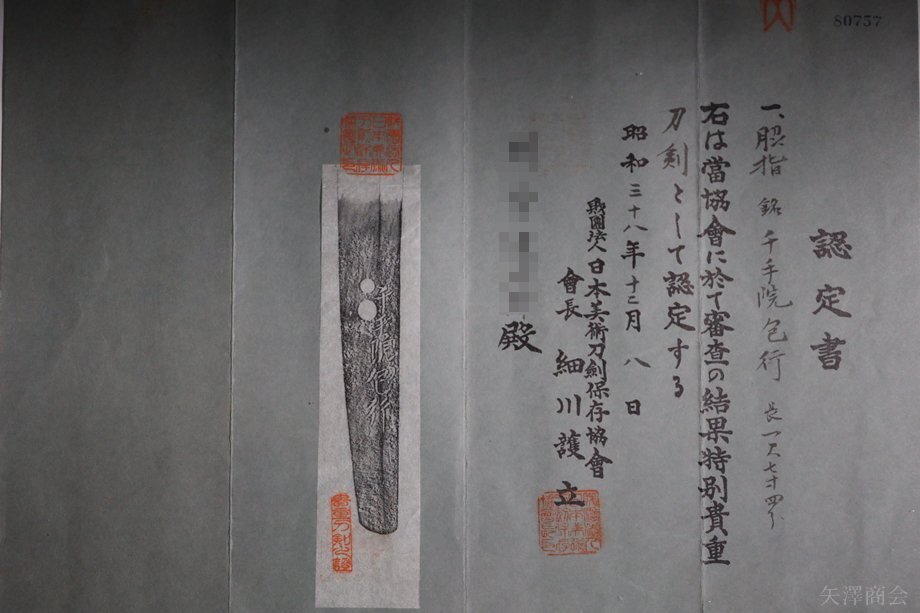 80757
認定書
一、脇指 銘 千手院包行 長一尺七寸四分
右は當協會に於て審査の結果特別貴重
刀剣として認定する
昭和三十八年十二月八日
財團法人日本美術刀劍保存協會
會長 細川護立
殿
千手院包行
貴重刀剣之證
矢澤商会